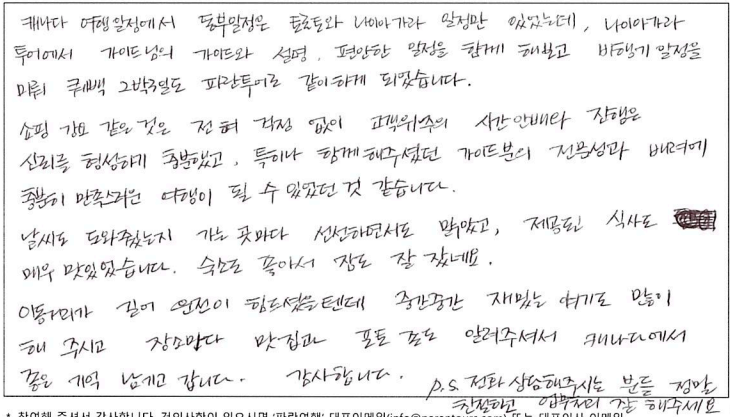 캐나다 여행일정에서 동부일정은 토론토와 나이아가라 일정만 있었는데, 나이아가라
투어에서 가이드님의 가이드와 설명, 편안한 일정을 함께 해보고 비행기 일정을
미뤄 퀘백 2박3일도 파란투어로 같이하게 되었습니다.
쇼핑 강요 같은 것은 전혀 걱정 없이 고객위주의 시간안배와 진행은
신뢰를 형성하기 충분했고, 특히나 함께해주셨던 가이드분의 전문성과 배려에
충분히 만족스러운 여행이 될 수 있었던 것 같습니다.
날씨도 도와줬는지 가는 곳마다 선선하면서도 맑았고, 제공된 식사도
매우 맛있었습니다. 숙소도 좋아서 잠도 잘 잤네요.
이동거리가 길어 운전이 힘드셨을텐데 중간중간 재밌는 얘기도 많이
해 주시고 장소마다 맛집과 포토존도 알려주셔서 캐나다에서
좋은 기억 남기고 갑니다. 감사합니다.
P.S. 전화상담해주시는 분들 정말
친절하고 업무처리 잘 해주세요
* 참여해 주셔서 감사합니다. 건의사항이 있으시면 '파란여행' 대표이메일(info@parantours.com) 또는 대표이사 이메일